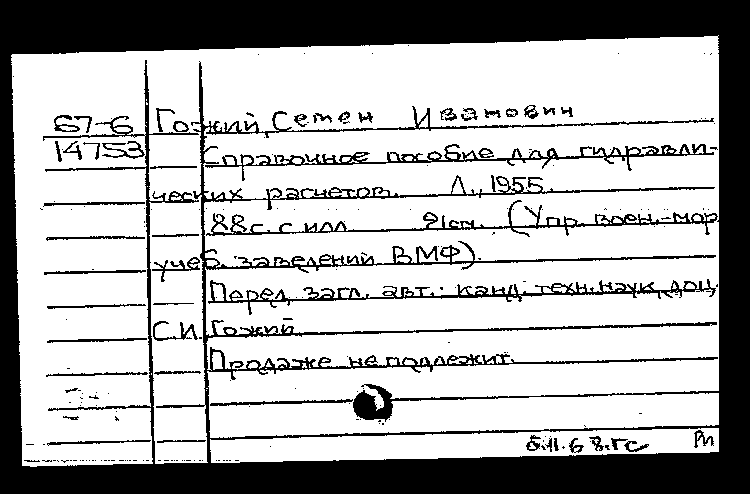 67-6 Гожий, Семен Иванович
14753 Справочное пособие для гидравли-
ческих расчетов. Л., 1955.
88с. с илл. 21см. (Упр. воен.-мор.
учеб. заведений ВМФ).
Перед загл. авт.: канд. техн. наук, доц.
С.И. Гожий.
Продаже не подлежит.